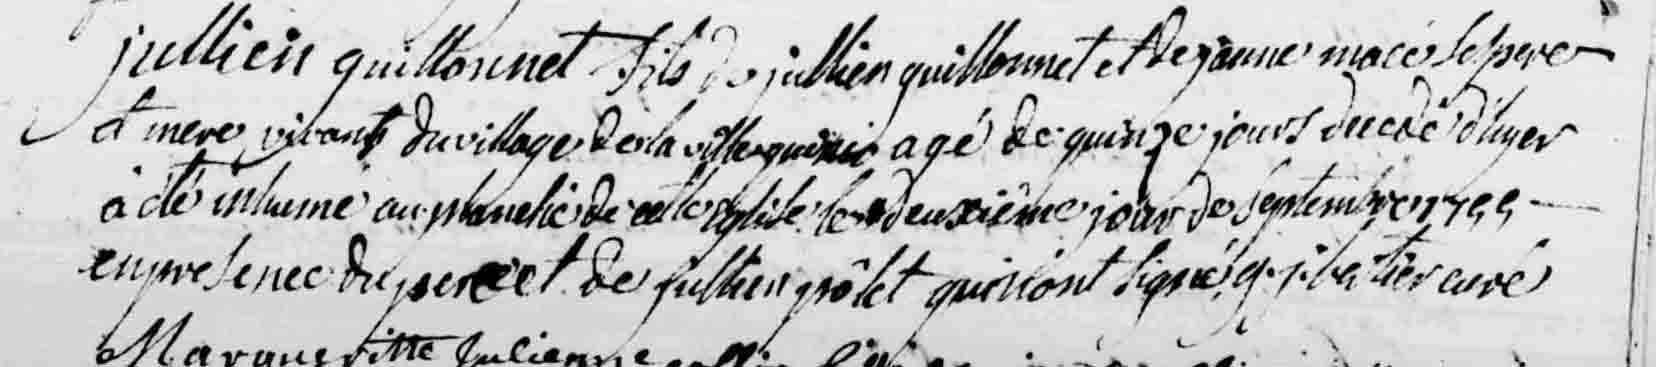 jullien guillonnet fils de jullien guillonnet et de janne macé ses pere
et mere vivants du village de la ville agé de quinze jours decedé d'hyer
a été inhumé au de cette eglise le deuxiême jour de septembre 1755
en presence du pere et de jullien pôlet qui n'ont signé curé
Margueritte Julienne